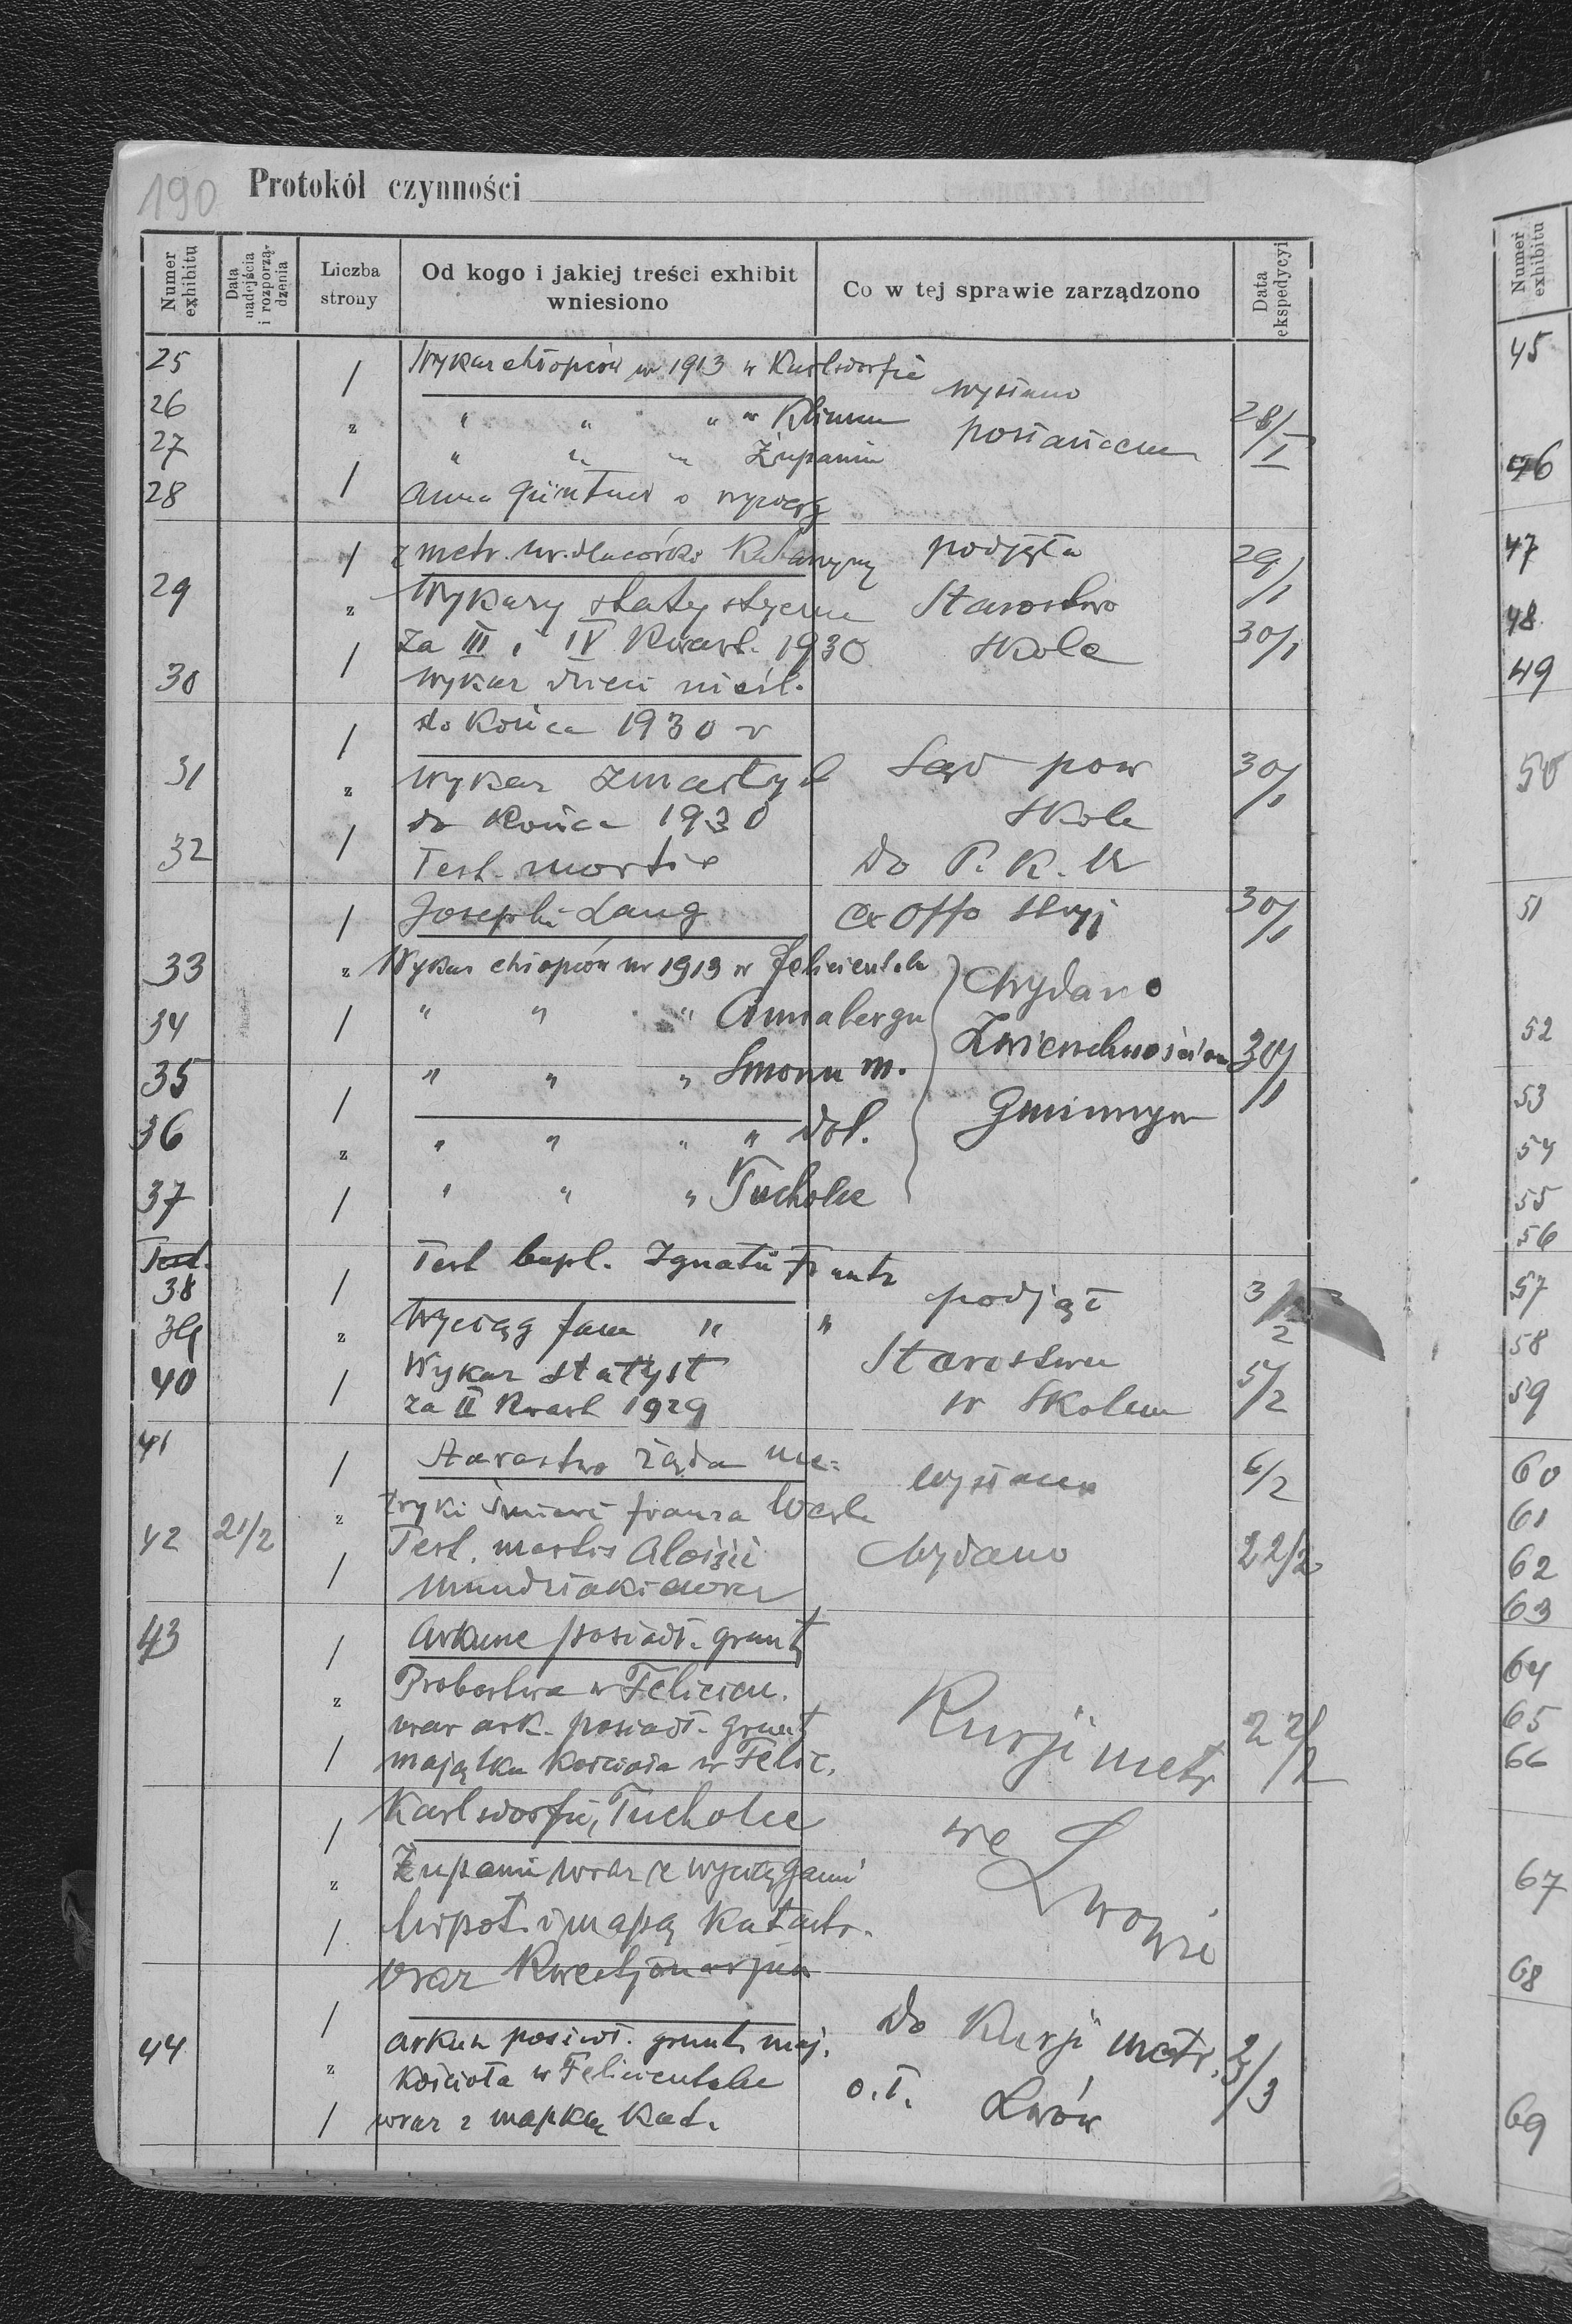 190 Protokół czynności
Numer exhibitu
Data nadejścia i rozporządzenia
Liczba strony
Od kogo i jakiej treści exhibit wniesiono
Co w tej sprawie zarządzono
Data ekspedycyi
25 / Wykaz chłopców ur 1913 w Karlsdorfie wysłano
26 „ „ „ „ w Klimcu posłańcem 28/I
27 „ „ „ Żupaniu
28 / Anna Güntner o wyciąg
/ z metr. ur. dla córki Katarzyny podjęła 29/1
29 „ Wykazy statystyczne Starostwo
za III i IV Kwart. 1930 Skole 30/1
30 / Wykaz dzieci nieśl.
/ do końca 1930 r
31 „ Wykaz zmarłych Sąd pow 30/1
do końca 1930 Skole
32 / Test. mortis do P. K. U
/ Josephi Lang ex offo Stryj 30/1
33 „ Wykaz chłopców ur 1913 w Felicientalu Wydano
34 / „ „ „ Annabergu Zwierzchnościom 30/1
35 „ „ „ Smorzu m.
/ Gminnym
36 „ „ „ „ „ dol.
37 / „ „ „ Tucholce
Test.
38 / Test bapt. Ignatii Frantz podjął 3/2
39 „ Wyciąg fam „ „
40 / Wykaz statyst Starostwu 5/2
za II Kwart 1929 w Skolem
41 / Starostwo żąda me- wysłano 6/2
„ tryki śmierci Franza
42 21/2 / Test. mortis Aloisii Wydano 22/2
43 / Arkusze posiadł. grunt
„ Probostwa w Felicien.
wraz ark. posiadł. grunt Kurji metr 22/2
/ majątku Kościoła w Felic.
/ Karlsdorfie, Tucholce we Lwowie
„ Żupaniu wraz z wyciągami
/ hipot. i mapą Katastr.
wraz Kwestjonarjusz
44 / arkusz posiadł. grunt. maj. Do Kurji metr. 2/3
„ Kościoła w Felicientalu o. ł. Lwów
/ wraz z mapką Kat.
Numer exhibitu
45
46
47
48
49
50
51
52
53
54
55
56
57
58
59
60
61
62
63
64
65
66
67
68
69